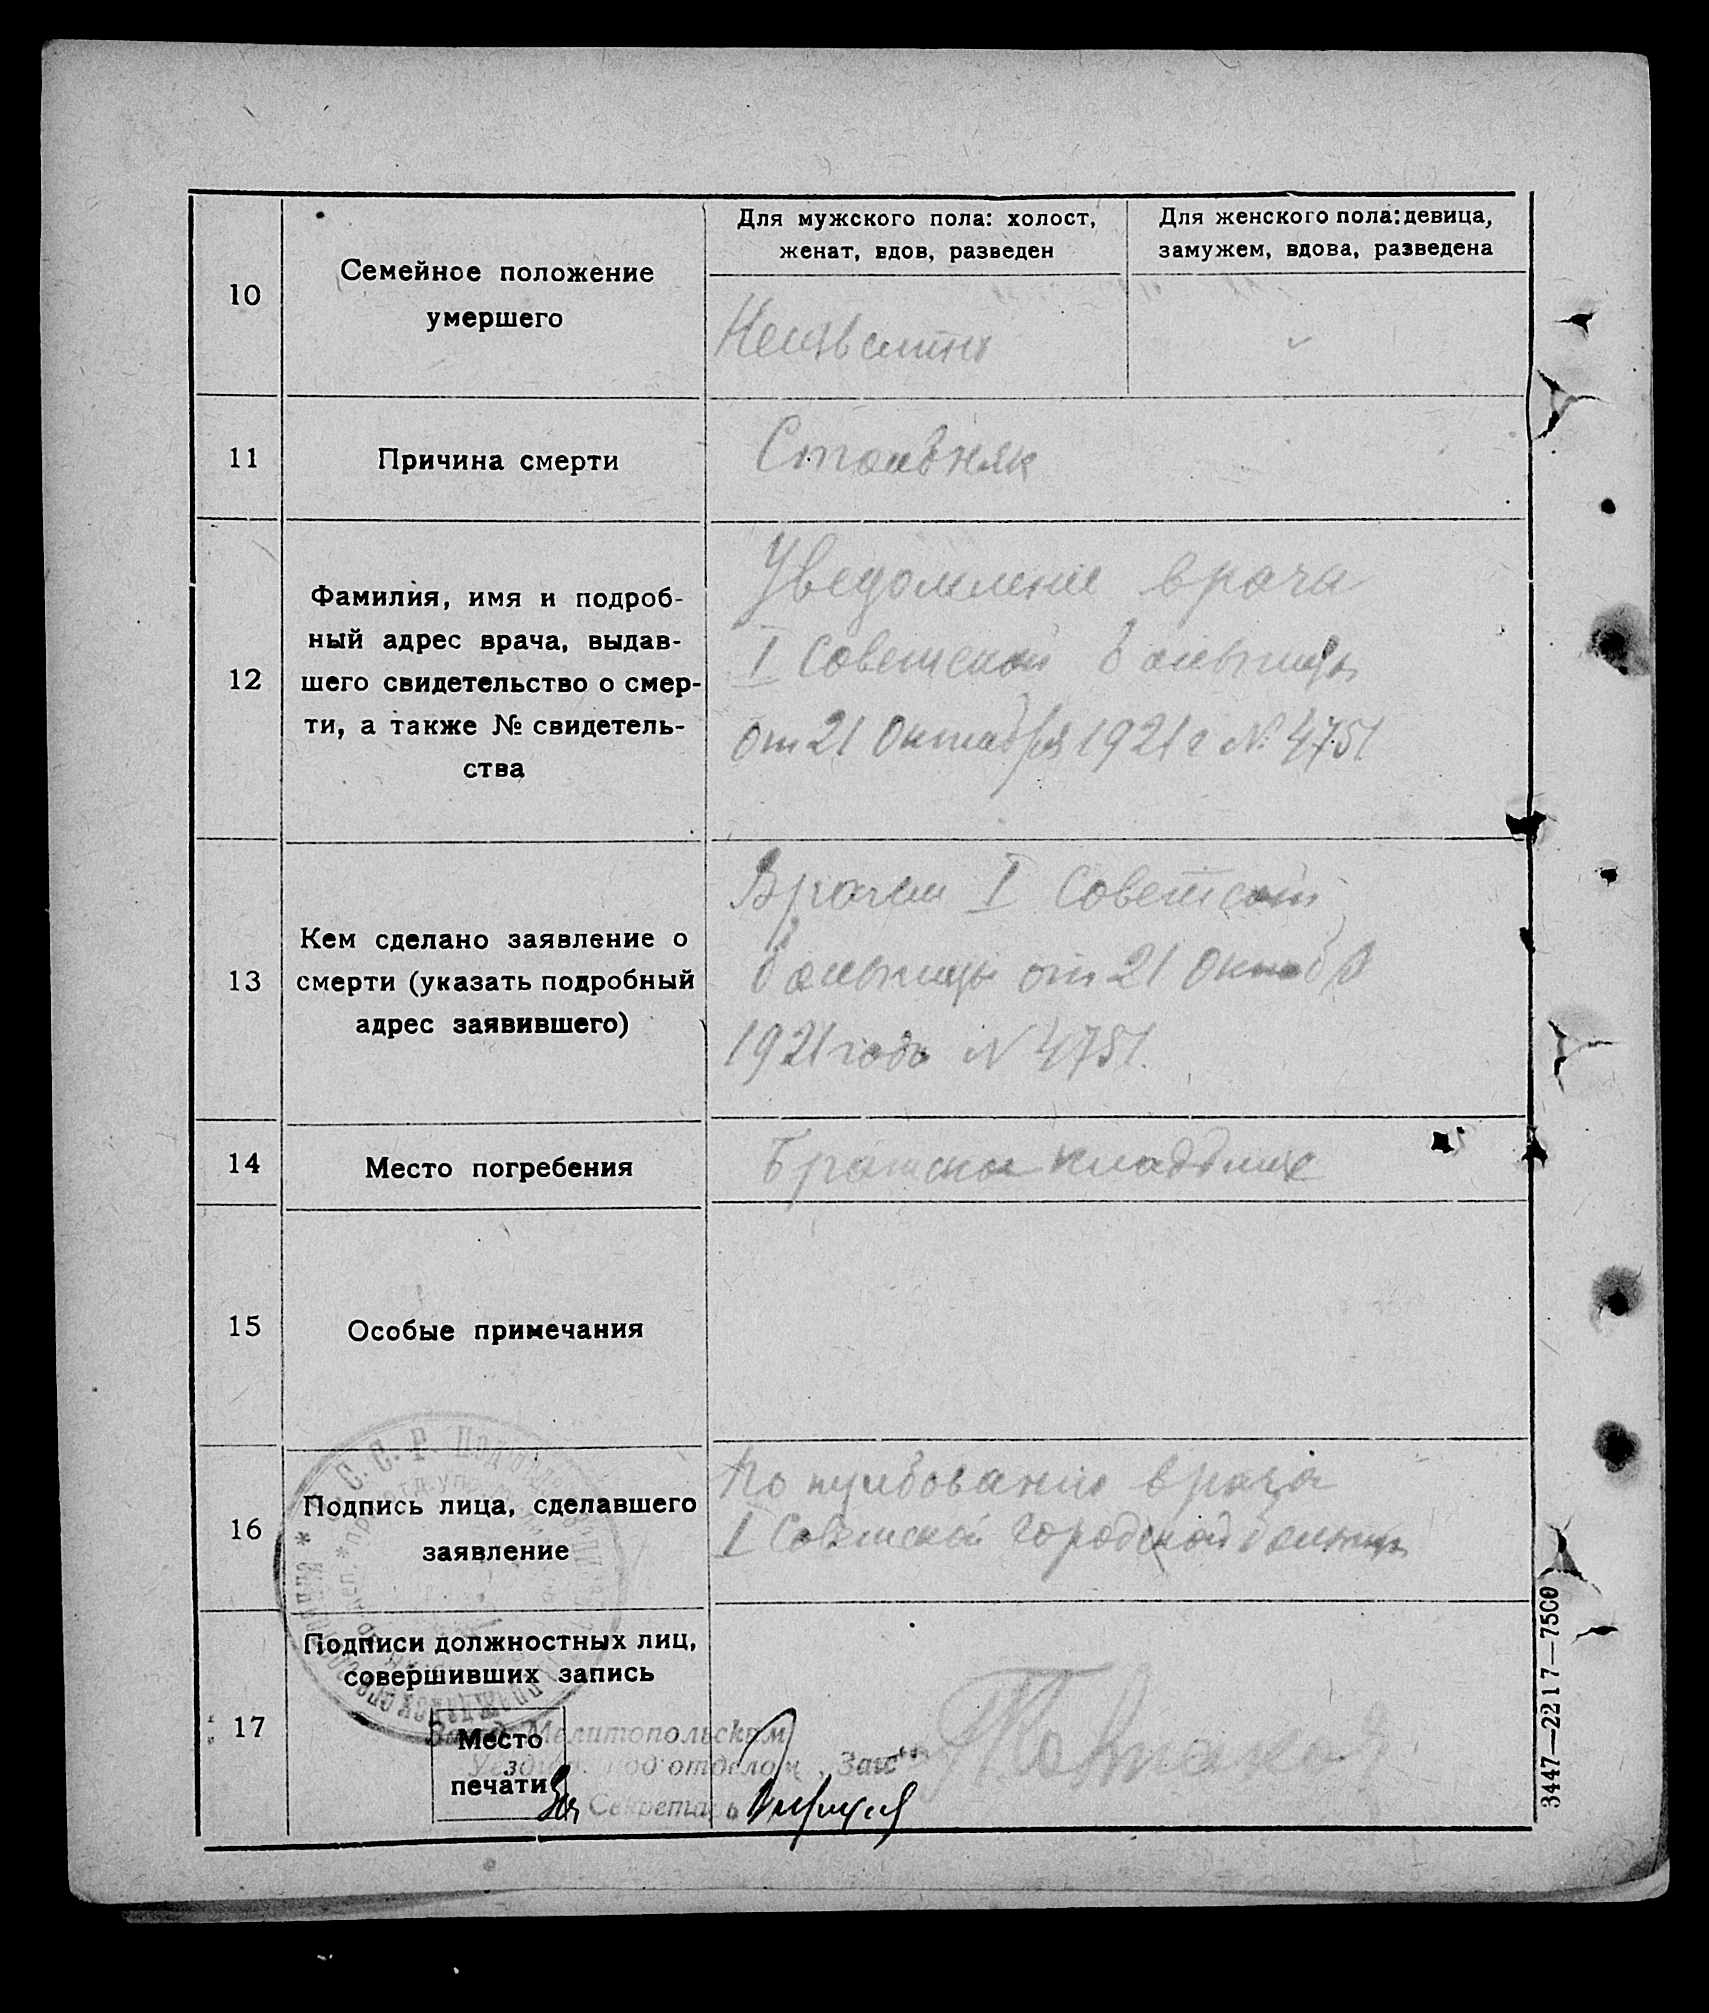 Для мужского пола: холост,
женат, вдов, разведен
Для женского пола: девица,
замужем, вдова, разведена
10
Семейное положение
умершего
11
Причина смерти
Столбняк
12
Фамилия, имя и подроб-
ный адрес врача, выдав-
шего свидетельство о смер-
ти, а также № свидетель-
ства
Уведомление врача
I Советской больницы
от 21 Октября 1921 г № 4751
13
Кем сделано заявление о
смерти (указать подробный
адрес заявившего)
Врачем I Советской
больницы от 21 Октяб
1921 года № 4751.
14
Место погребения
Братское кладбище
15
Особые примечания
16
Подпись лица, сделавшего
заявление
По врача
I Советской Городской больницы
17
Подписи должностных лиц,
совершивших запись
Место
печати
Зав. Мелитопольским
Уездн. Подотделом „Загс“
За Секретарь
С. С. Р. Подотдел
3447—2217—7500